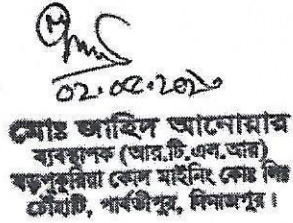 মোঃ জাহিদ আনোয়ার
ব্যবস্থাপক (আর.টি.এল.আর)
বড়পুকুরিয়া কোল মাইনিং কোঃ লিঃ
চৌহাটি, পার্বতীপুর, দিনাজপুর।